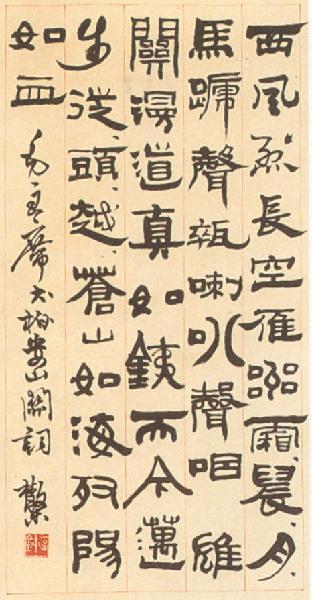 西風烈長空雁叫霜、晨、月、
馬蹄聲碎喇叭聲咽雄
關漫道真如銕而今邁
步從、頭、越、蒼山如海殘陽
如血 毛主席大柏娄山關詞